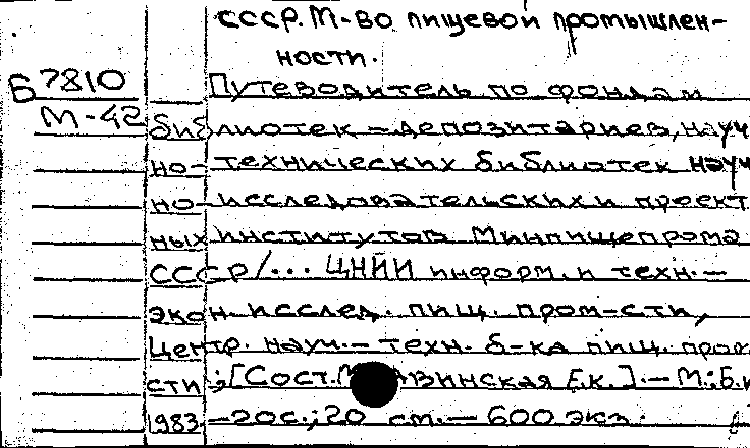 СССР. М-во пищевой промышлен-
ности.
Б 7810
Путеводитель по фондам
М-42
библиотек - депозитариев, науч
но-технических библиотек науч
но-исследовательских и проект
ных институтов Минпищепрома
СССР/... ЦНИИ информ. и техн.-
экон. исслед. пищ. пром-сти,
Центр. науч.- техн. б-ка пищ. пром
сти ; [Сост. Е.К. ].- М.: Б.и
1983 -20с.; 20 см.- 600 экз.